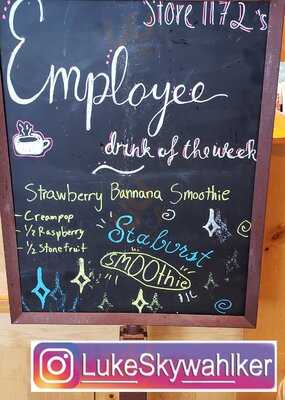 Store 1172's
Employee
drink of the week
Strawberry Bannana Smoothie
- Creampop
- 1/2 Raspberry
- 1/2 Stonefruit
Staburst
SMOOthie
LukeSkywahlker